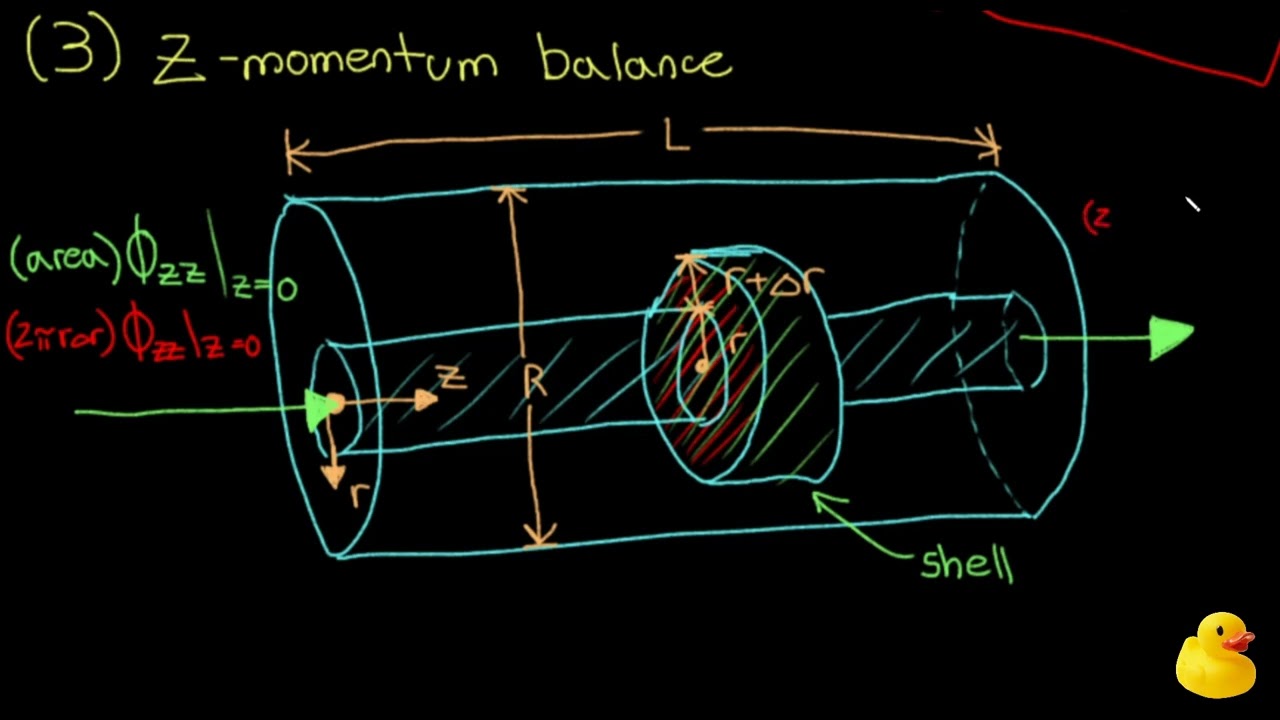 (3) Z-momentum balance
L
(area) ϕzz|z=0
(2πrΔr) ϕzz|z=0
(2
r+Δr
r
z
R
r
shell